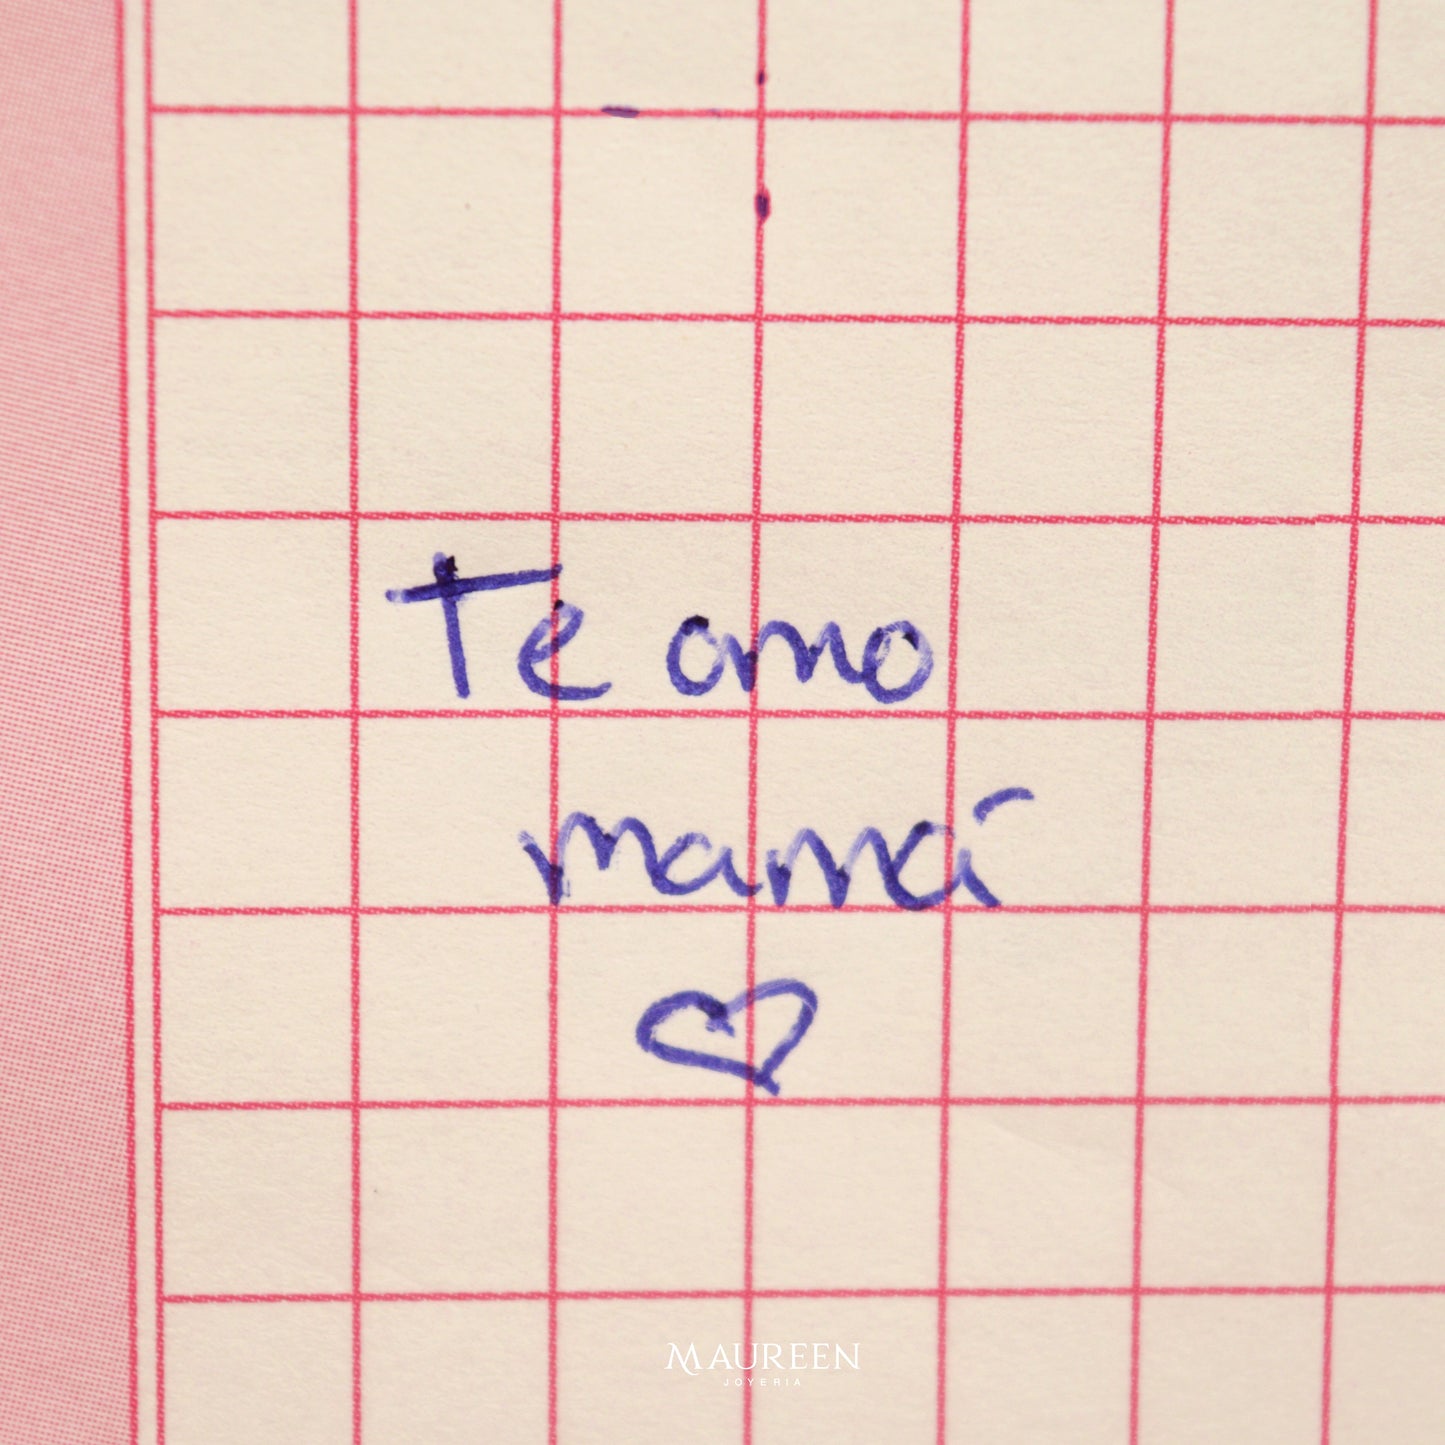 Te amo
mamá
MAUREEN
JOYERIA